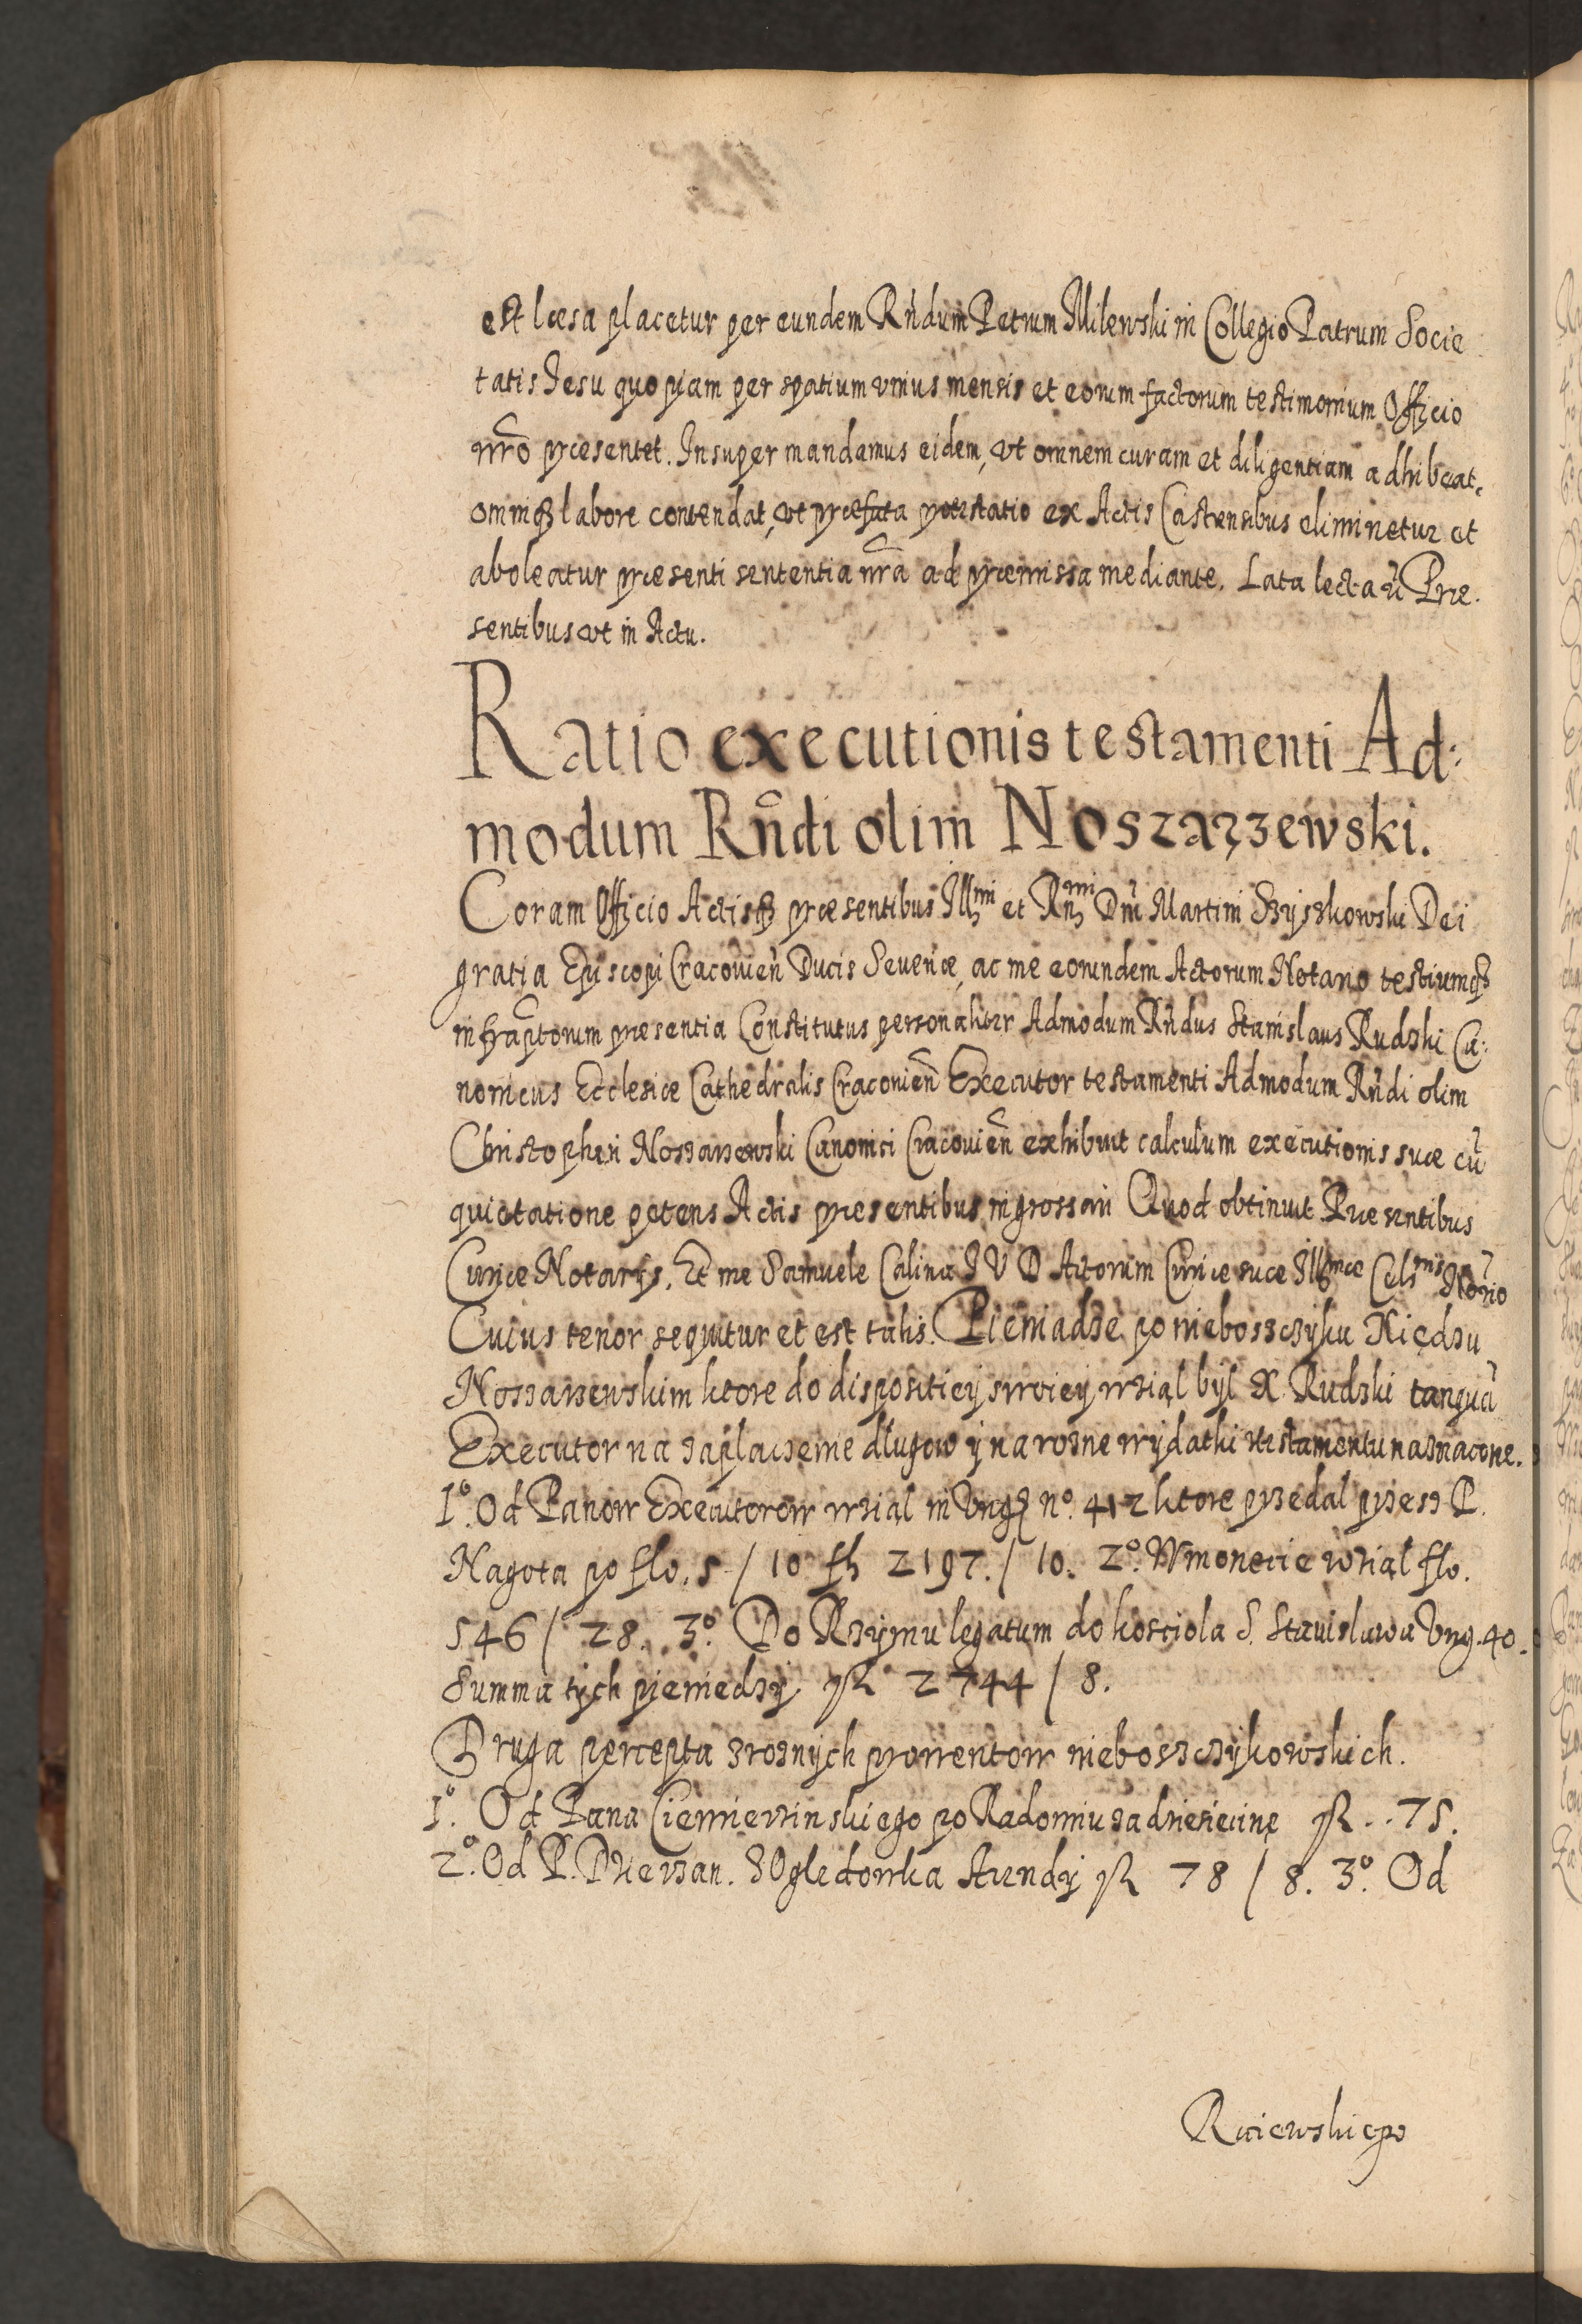 est læsa placetur per eundem Rńdum Petrum Milewski in Collegio Patrum Socie
tatis Iesu quopiam per spatium vnius mensis et eorum factorum testimonium Officio
nr̃o præsentet. Insuper mandamus eidem, vt omnem curam et diligentiam adhibeat,
omniq₃ labore contendat, vt præfata protestatio ex Actis Castrensibus eliminetur et
aboleatur præsenti sententia nr̃a ad præmissa mediante. Lata lecta Præ.
sentibus vt in Actu.
Ratio executionis testamenti Ad:
modum Rñdi olim Noszarzewski.
Coram Officio Actisq₃ præsentibus Illmi et Rmi Dnĩ Martini Szyszkowski Dei
gratia Episcopi Cracovień Ducis Severiæ, ac me eorundem Actorum Notario testiumq₃
infrãptorum præsentia Constitutus personaliter Admodum Rńdus Stanislaus Rudzki Ca:
nonicus Ecclesiæ Cathedralis Cracovieñ Executor testamenti Admodum Rńdi olim
Christopheri Noszarzewski Canonici Cracovieñ exhibuit calculum executionis suæ cũ
quietatione petens Actis præsentibus ingrossari Quod obtinuit Præsentibus
Curiæ Notarijs. Et me Samuele Calina I V D Actorum Curiæ suæ Illmæ Celsnis Notrio
Cuius tenor sequitur et est talis. Pieniadze po nieboszczyku Kiędzu
Noszarzewskim ktore do dispositiey swoiey wział był X Rudzki tanquã
Executor na zapłaczenie długow y na rozne wydatki testamentu naznaczone.
1º. Od Panow Executorow wział in Vng. nº. 412 ktore przedal przesz P.
Nagota po flo. 5 / 10 fl. 2197. / 10. 2º. W monecie wział flo.
546 / 28. 3º. Do Rzymu legatum do kosciola S. Stanislawa Vng. 40.
Summa tych pieniedzy fl. 2744 / 8.
Druga percepta z roznych prowentow nieboszczykowskich.
1º. Od Pana Ciemierzinskiego po Radomiu za dziesiecinę fl. .. 75.
2º. Od P. Dzierzan. Z Ogledowka Arendy fl. 78 / 8. 3º. Od